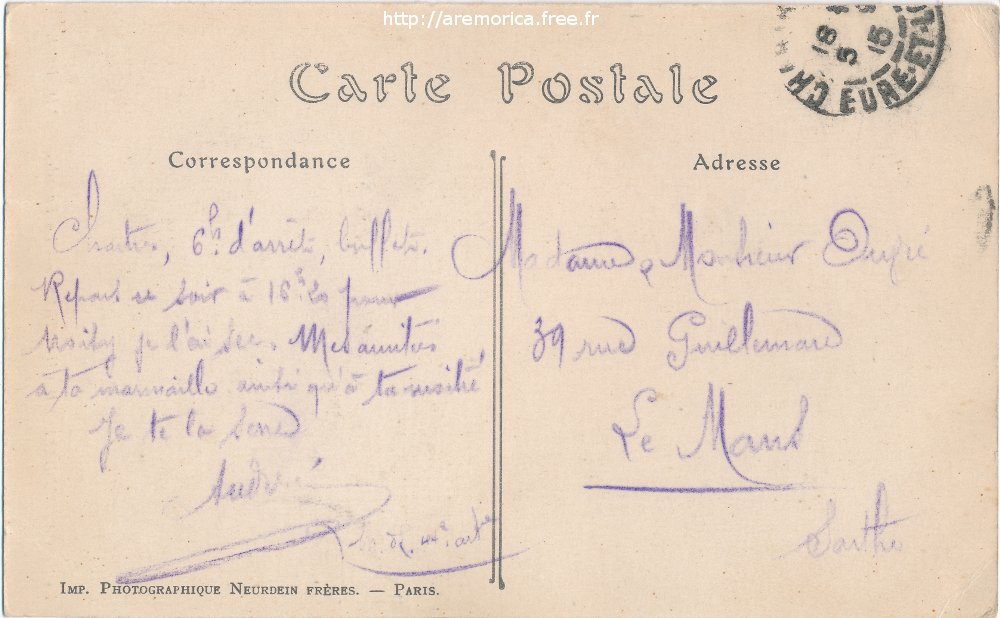 http://aremorica.free.fr
Carte Postale
18
5 15
CH EURE-ET-LO
Correspondance
Chartres, 6h d'arrêt, buffet.
Repars ce soir à 18h20 pour
je l'ai sec. Mes amitiés
à ta marmaille ainsi qu'à ta moitié
Je te la serre
André
44e art
Imp. Photographique Neurdein Frères. — Paris.
Adresse
Madame & Monsieur
39 rue Guillemare
Le Mans
Sarthe